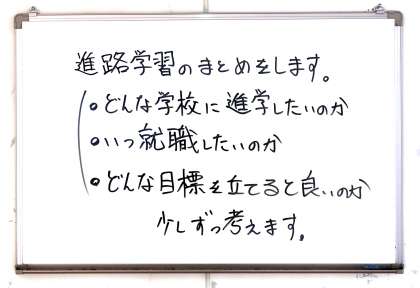 進路学習のまとめをします。
•どんな学校に進学したいのか
•いつ就職したいのか
•どんな目標を立てると良いのか
少しずつ考えます。